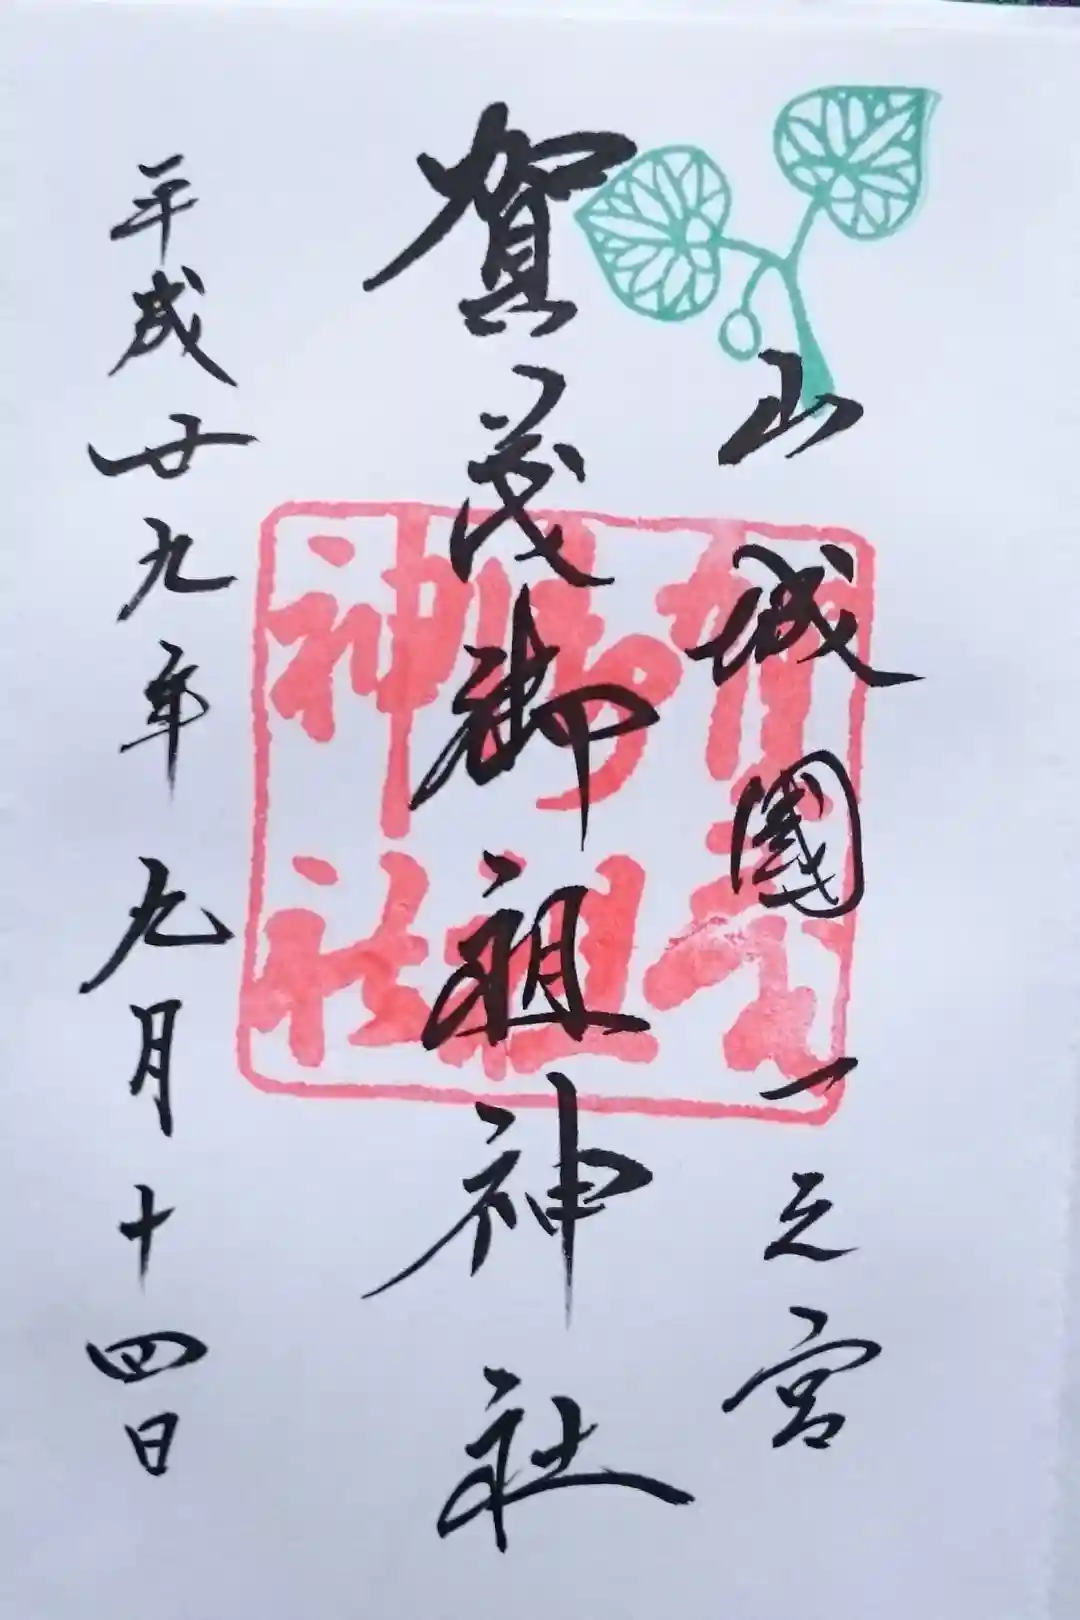 山城國一之宮
賀茂御祖神社
平成廿九年九月十四日
賀茂
御祖
神社